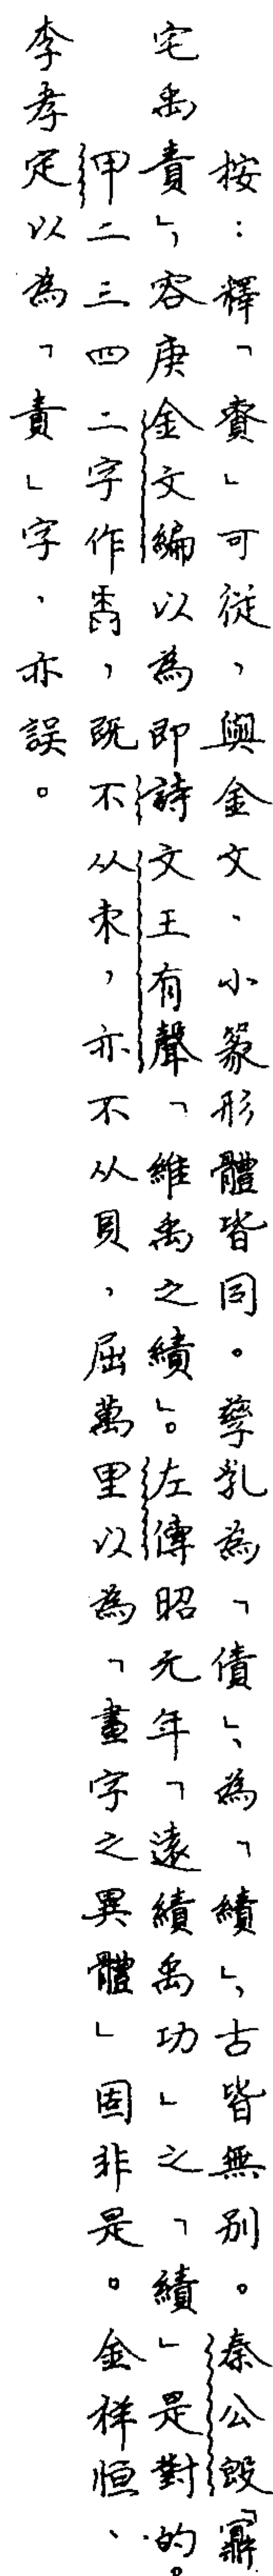 按：釋「賚」可從，與金文、小篆形體皆同。孳乳為「債」、為「績」，古皆無別。秦公𣪘「鼏
宅禹責」，容庚金文編以為即詩文王有聲「維禹之績」。左傳昭元年「遠績禹功」之「績」是對的。
甲二三四二字作，既不从朿，亦不从貝，屈萬里以為「畫字之異體」固非是。金祥恒、
李孝定以為「責」字，亦誤。